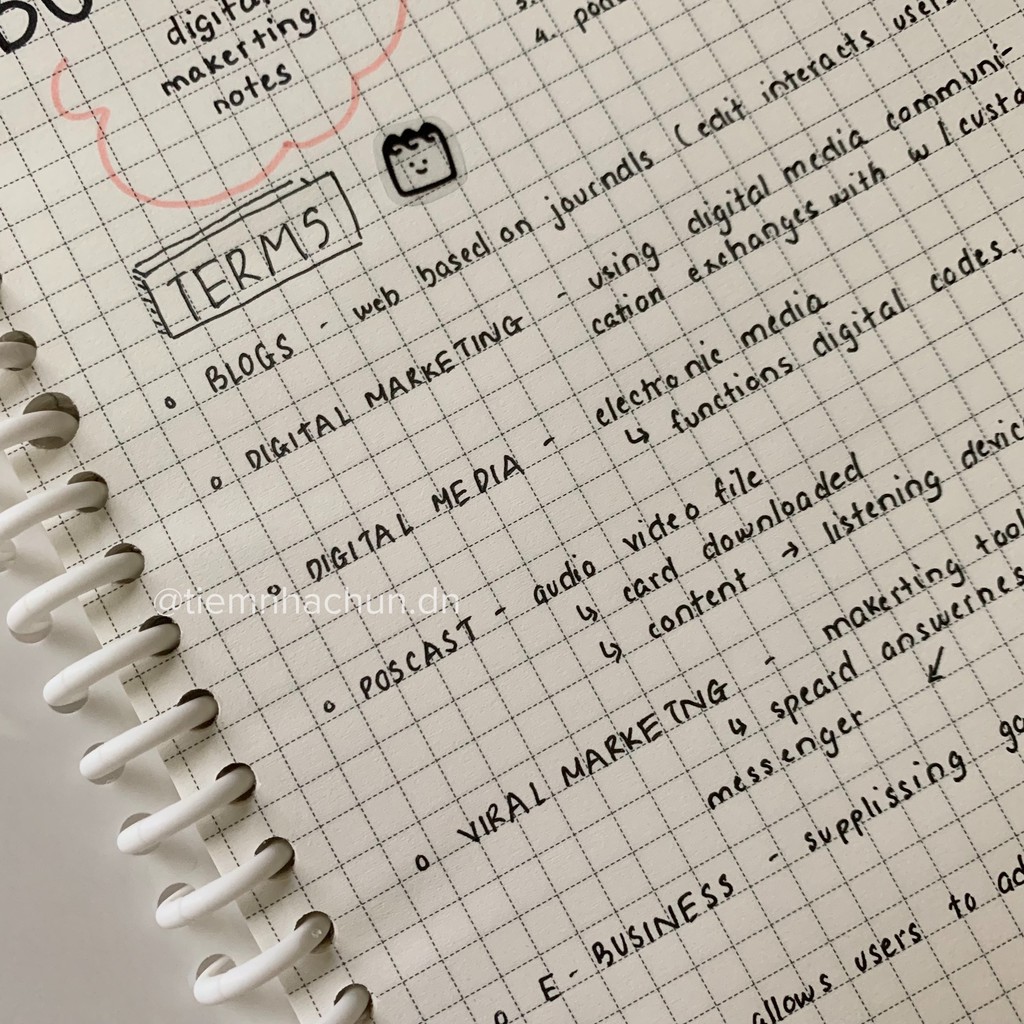 makerting
notes
TERMS
BLOGS - web based on journals (edit interacts
DIGITAL MARKETING - using digital media communi-
cation exchanges with w/
DIGITAL MEDIA - electronic media
↳ functions digital codes.
POSCAST - audio video file
↳ card downloaded
↳ content → listening
VIRAL MARKETING - makerting
↳ speard
messenger
E-BUSINESS - supplissing
allows users to
@tiemnhachun.dn